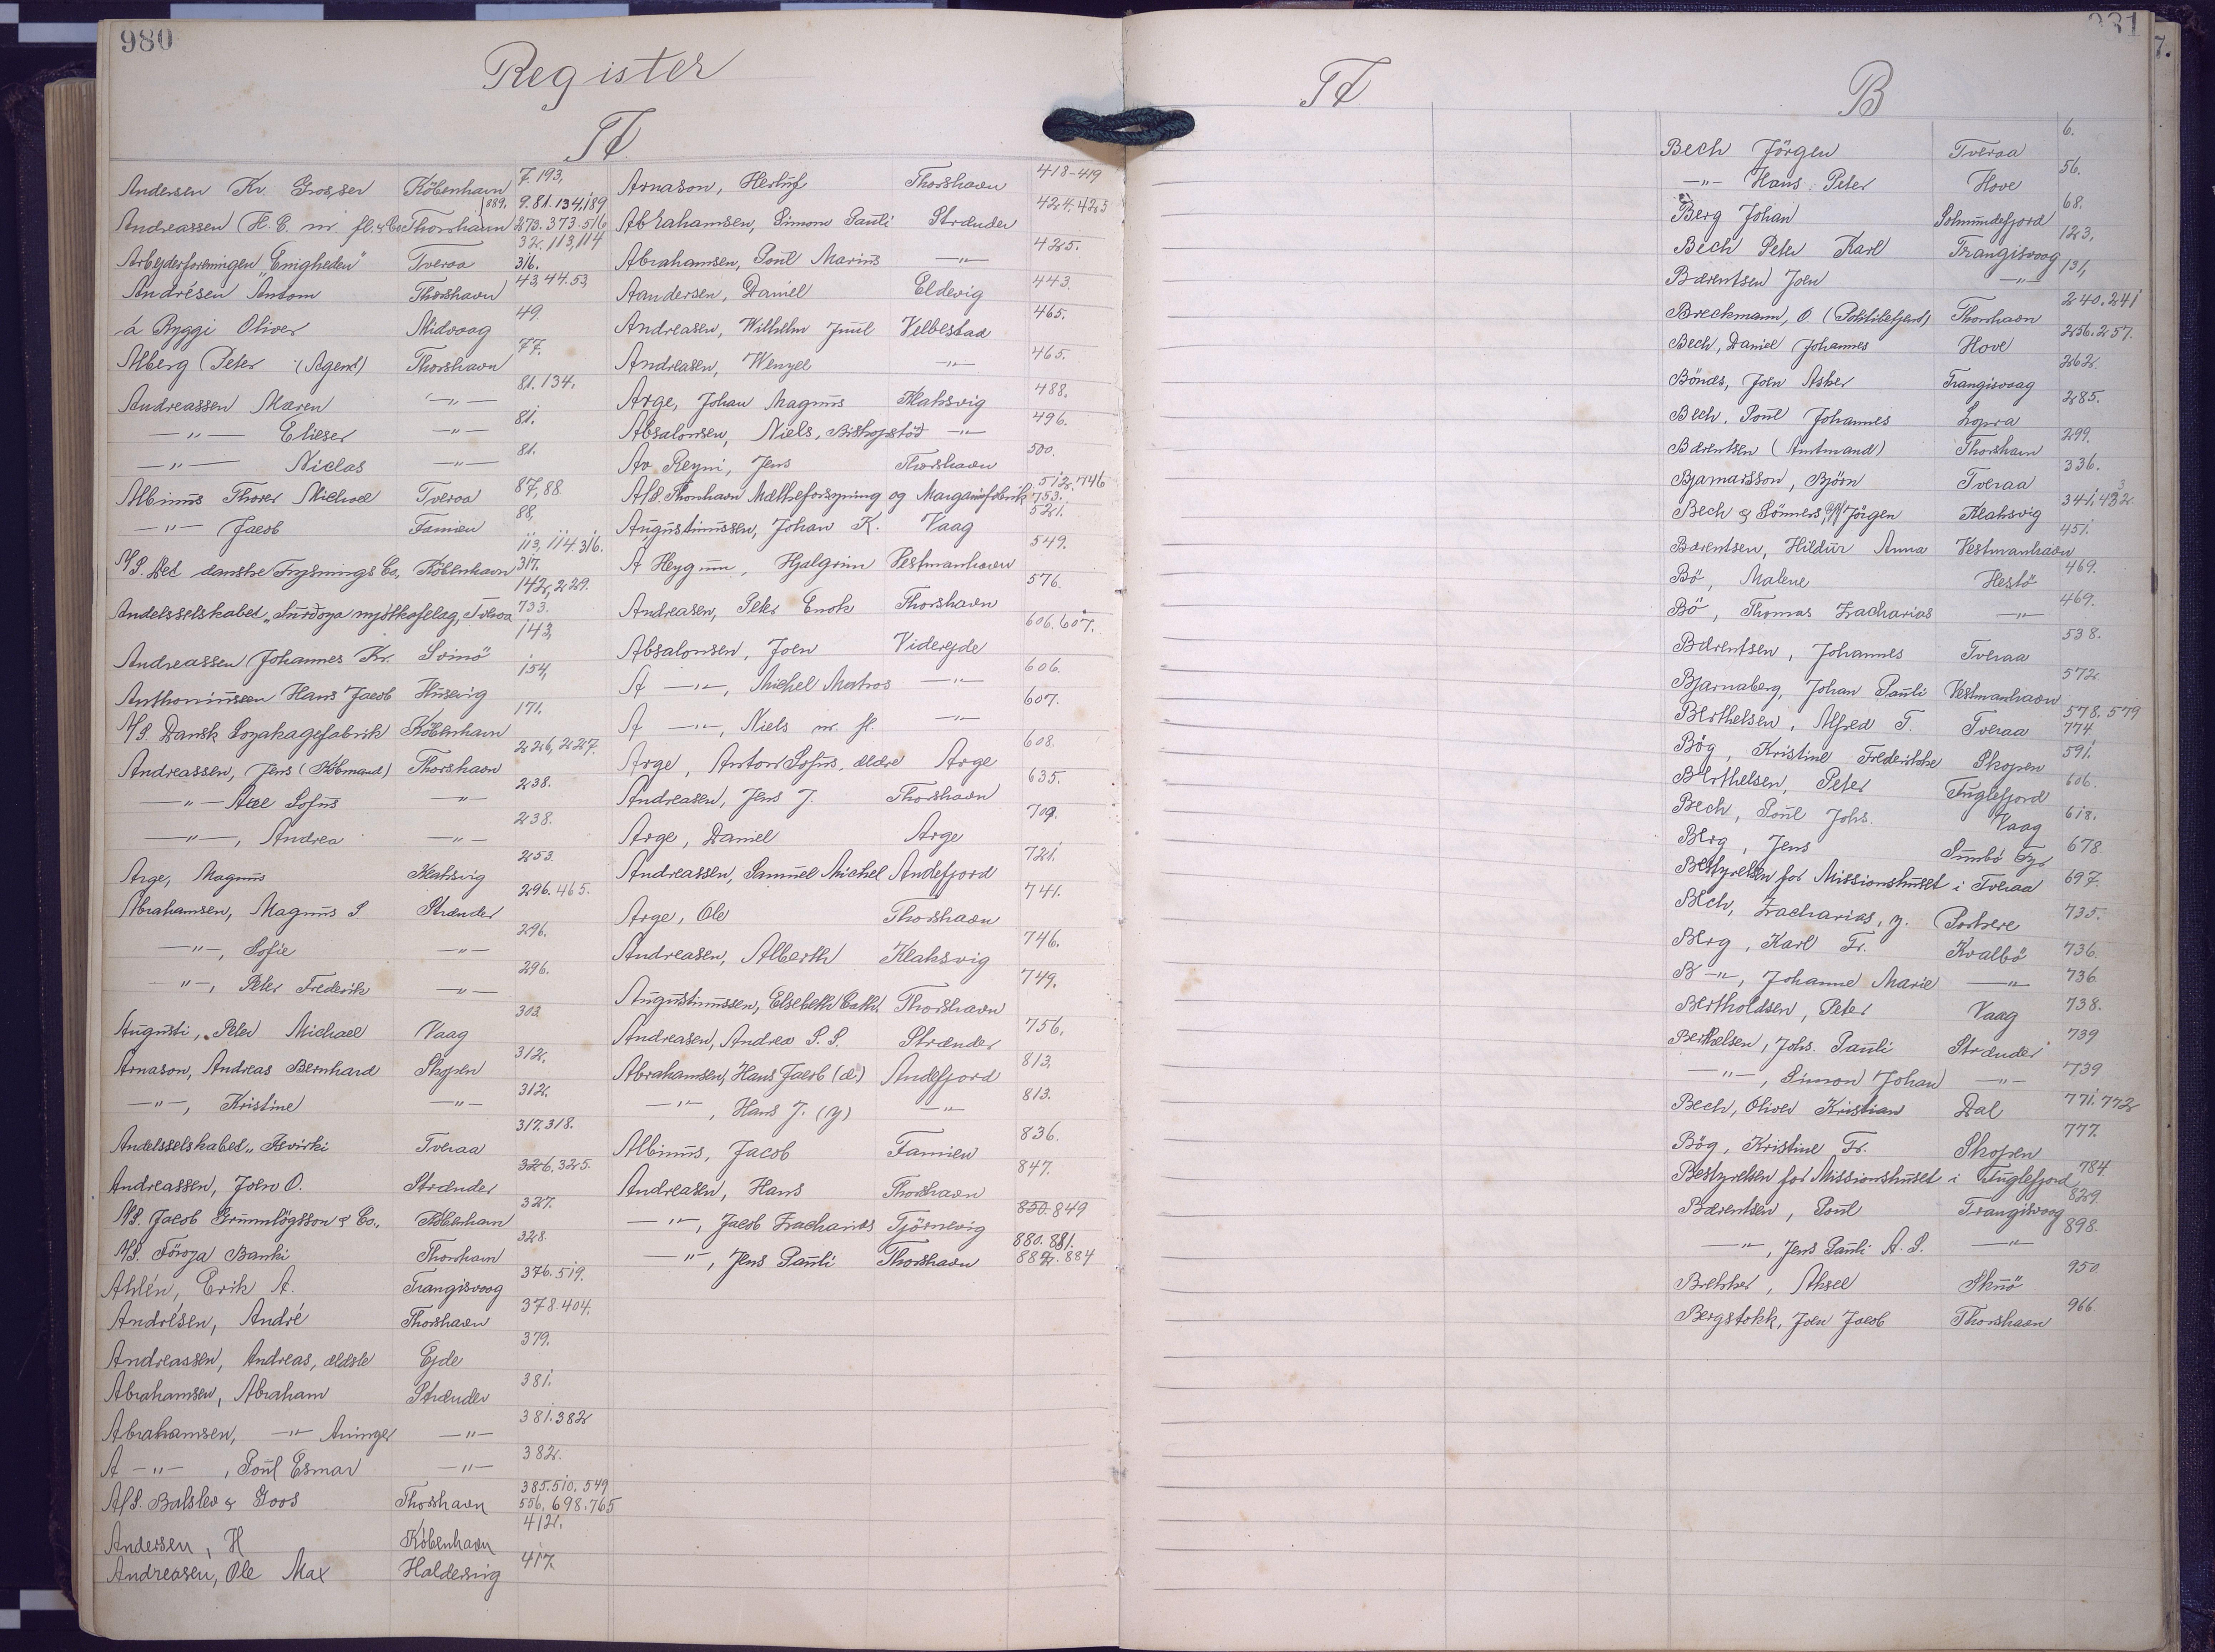 980
Register
A
Andersen Kr. Grosser København 7. 193,
Andreassen (H. C. m. fl. & Co Thorshavn 889. 9. 81. 134, 189 273. 373. 516
Arbejderforeningen "Enigheden" Tveraa 32, 113, 114 316.
Andrésen Anton Thorshavn 43, 44. 53,
á Ryggi Oliver Midvaag 49,
Alberg Peter (Agent) Thorshavn 77.
Andreassen Maren —"— 81. 134.
—"— Elieser —"— 81.
—"— Niclas —"— 81.
Albinus Thorer Michael Tveraa 87, 88.
—"— Jacob Famien 88,
A/S. Det danske Frysnings Co, København 113, 114. 316. 317.
Andelsselskabet "Surdoya mjólkafelag, Tveraa 142, 229. 733.
Andreassen Johannes Kr. Svinö 143,
Anthoniussen Hans Jacob Husevig 154,
A/S. Dansk Soyakagefabrik København 171.
Andreassen, Jens (Købmand) Thorshavn 226, 227.
—"— Axel Sofus —"— 238.
—"—, Andrea —"— 238.
Arge, Magnus Klaksvig 253.
Abrahamsen, Magnus S Strænder 296. 465.
—"—, Sofie —"— 296.
—"—, Peter Frederik —"— 296.
Augusti, Peter Michael Vaag 303.
Arnason, Andreas Bernhard Skopen 312.
—"—, Kristine —"— 312.
Andelsselskabet "Isvirki Tveraa 317. 318.
Andreassen, Joen O. Strænder 326. 325.
A/S. Jacob Grunnlögsson & Co., København 327.
A/S. Föroya Banki Thorshavn 328.
Ahlén, Erik A. Trangisvaag 376. 519.
Andrésen, André Thorshavn 378. 404.
Andreassen, Andreas, ældste Ejde 379.
Abrahamsen, Abraham Strænder 381.
Abrahamsen, —"— Aninger —"— 381. 382
A —"—, Poul Esmar —"— 382.
A/S. Balslev & Goos Thorshavn 385. 510. 549 556. 698. 765
Andersen, H København 412.
Andreasen, Ole Max Haldersvig 417.
Arnason, Herluf Thorshavn 418-419
Abrahamsen, Simon Pauli Strænder 424. 425
Abrahamsen, Poul Marius —"— 425.
Aandersen, Daniel Eldevig 443.
Andreasen, Wilhelm Juul Velbestad 465.
Andreasen, Wenzel —"— 465.
Arge, Johan Magnus Klaksvig 488.
Absalonsen, Niels, Bishopstöd —"— 496.
Av Reyni, Jens Thorshavn 500.
A/S. Thorshavn Mælkeforsyning og Margarinfabrik 512. 746 753.
Augustinussen, Johan K. Vaag 521.
A Heygum, Hjalgrim Vestmanhavn 549.
Andreasen, Peter Enok Thorshavn 576.
Absalonsen, Joen Viderejde 606. 607.
A —"—, Michel Matros —"— 606.
A —"—, Niels m. fl. —"— 607.
Arge, Anton Sofus, ældre Arge 608.
Andreasen, Jens J. Thorshavn 635.
Arge, Daniel Arge 709.
Andreassen, Samuel Michel Andefjord 721.
Arge, Ole Thorshavn 741.
Andreasen, Alberth Klaksvig 746.
Augustinussen, Elsebeth Cath. Thorshavn 749.
Andreasen, Andrea S. S. Strænder 756.
Abrahamsen, Hans Jacob (æ.) Andefjord 813.
—"—, Hans J. (y) —"— 813.
Albinus, Jacob Famien 836.
Andreasen, Hans Thorshavn 847.
—"—, Jacob Zacharias Tjörnevig 850. 849
—"—, Jens Pauli Thorshavn 880. 881. 882. 884
981
A
B
Bech Jörgen Tveraa 6.
—"— Hans Peter Hove 56.
Berg Johan Solmundefjord 68.
Bech Peter Karl Trangisvaag 123,
Bærentsen Joen —"— 131,
Breckmann, O. (Politibetjent) Thorshavn 240. 241
Bech, Daniel Johannes Hove 256. 257.
Bönes, Joen Asker Trangisvaag 262.
Bech, Poul Johannes Lopra 285.
Bærentsen (Amtmand) Thorshavn 299.
Bjarnarsson, Björn Tveraa 336.
Bech & Sönner, Jörgen Klaksvig 341. 432
Bærentsen, Hildur Anna Vestmanhavn 451.
Bö, Malene Hestö 469.
Bö, Thomas Zacharias —"— 469.
Bærentsen, Johannes Tveraa 538.
Bjarnaberg, Johan Pauli Vestmanhavn 572
Berthelsen, Alfred T. Tveraa 578. 579 774
Bög, Kristine Frederikke Skopen 591.
Berthelsen, Peter Fuglefjord 606.
Bech, Poul Johs. Vaag 618.
Berg, Jens Sumbö 678
Bestyrelsen for Missionshuset i Tveraa 697.
Bech, Zacharias, y. Porkere 735.
Berg, Karl Fr. Kvalbö 736.
B —"—, Johanne Marie —"— 736
Bertholdsen, Peter Vaag 738.
Berthelsen, Johs. Pauli Strænder 739
—"—, Simon Johan —"— 739
Bech, Oliver Kristian Dal 771. 772
Bög, Kristine Fr. Skopen 777.
Bestyrelsen for Missionshuset i Fuglefjord 784
Bærentsen, Poul Trangisvaag 829.
—"—, Jens Pauli A. S. —"— 898.
Brekker, Aksel Skuö 950.
Bergstokk, Joen Jacob Thorshavn 966.
7.